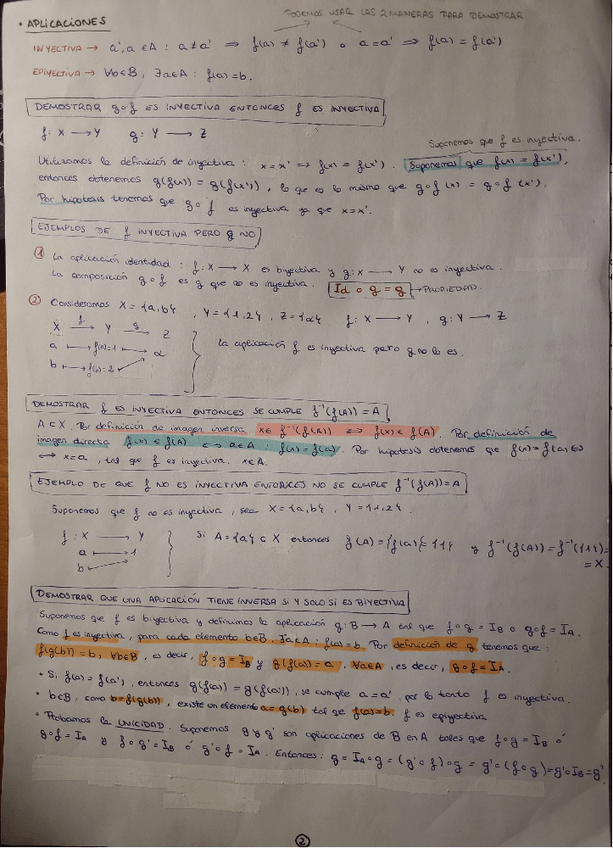 • APLICACIONES
PODEMOS USAR LAS 2 MANERAS PARA DEMOSTRAR
INYECTIVA → a', a ∈ A : a ≠ a' ⇒ f(a) ≠ f(a') o a = a' ⇒ f(a) = f(a')
EPIYECTIVA → ∀b∈B, ∃a∈A : f(a)=b.
DEMOSTRAR g∘f ES INYECTIVA ENTONCES f ES INYECTIVA
f: X → Y g: Y → Z
Suponemos que f es inyectiva.
Utilizamos la definición de inyectiva : x=x' ⇒ f(x) = f(x'). Suponemos que f(x) = f(x'),
entonces obtenemos g(f(x)) = g(f(x')), lo que es lo mismo que g∘f(x) = g∘f(x').
Por hipótesis tenemos que g∘f es inyectiva ya que x=x'.
EJEMPLOS DE f INYECTIVA PERO g NO
① La aplicación identidad : f: X → X es biyectiva y g: X → Y no es inyectiva.
La composición g∘f es g que no es inyectiva. Id ∘ g = g → PROPIEDAD.
② Consideramos X = {a,b}, Y = {1,2}, Z = {α} f: X → Y, g: Y → Z
X f→ Y g→ Z
a ↦ f(a)=1 ↦ α
b ↦ f(b)=2
La aplicación f es inyectiva pero g no lo es.
DEMOSTRAR f ES INYECTIVA ENTONCES SE CUMPLE f⁻¹(f(A)) = A
A ⊂ X. Por definición de imagen inversa x∈ f⁻¹(f(A)) ⇔ f(x) ∈ f(A). Por definición de
imagen directa f(x) ∈ f(A) ⇔ a∈A : f(x) = f(a). Por hipótesis obtenemos que f(x) = f(a) ⇔
⇔ x=a, tal que f es inyectiva. x∈A.
EJEMPLO DE QUE f NO ES INYECTIVA ENTONCES NO SE CUMPLE f⁻¹(f(A))=A
Suponemos que f no es inyectiva, sea X={a,b}, Y={1,2}.
f : X → Y
a ↦ 1
b
Si A={a} ⊂ X entonces f(A)={f(a)}={1} y f⁻¹(f(A))=f⁻¹({1})=
= X.
DEMOSTRAR QUE UNA APLICACIÓN TIENE INVERSA SI Y SOLO SI ES BIYECTIVA
Suponemos que f es biyectiva y definimos la aplicación g: B → A tal que f∘g = I_B o g∘f = I_A.
Como f es inyectiva, para cada elemento b∈B, ∃a∈A : f(a)=b. Por definición de g tenemos que :
f(g(b)) = b, ∀b∈B, es decir, f∘g = I_B y g(f(a)) = a, ∀a∈A, es decir, g∘f = I_A.
• Si f(a) = f(a'), entonces g(f(a)) = g(f(a')), se cumple a=a', por lo tanto f es inyectiva.
• b∈B, como b=f(g(b)), existe un elemento a=g(b) tal que f(a)=b. f es epiyectiva
• Probamos la UNICIDAD. Suponemos g y g' son aplicaciones de B en A tales que f∘g = I_B ó
g∘f = I_A y f∘g' = I_B ó g'∘f = I_A. Entonces: g = I_A∘g = (g'∘f)∘g = g'∘(f∘g)=g'∘I_B=g'
②